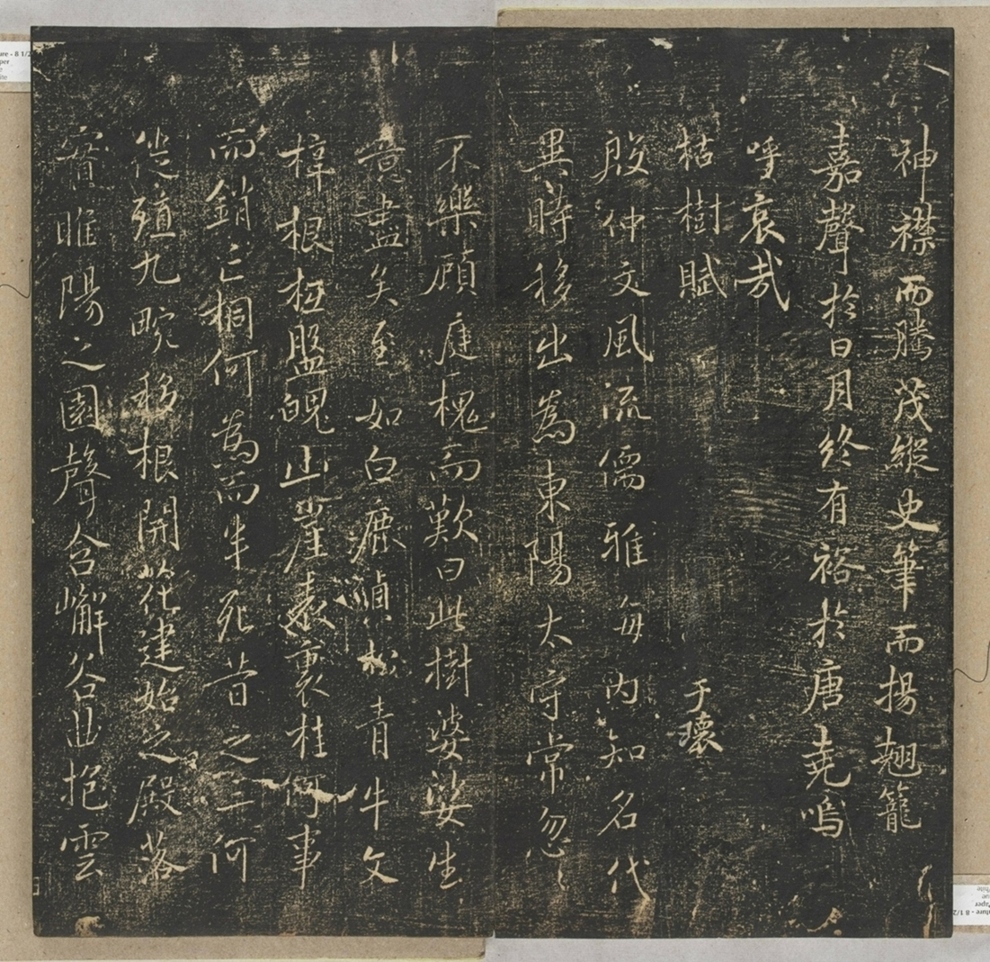 神襟而騰茂縱史筆而揚翹籠
嘉聲於日月終有裕於唐堯嗚
呼哀哉
枯樹賦 于瓌
殷仲文風流儒雅海内知名代
異時移出為東陽太守常忽〻
不樂顧庭槐而歎曰此樹婆娑生
意盡矣至如白鹿貞松青牛文
梓根柢盤魄山崖表裏桂何事
而銷亡桐何為而半死昔之三河
徙殖九畹移根開花建始之殿落
實睢陽之園聲含嶰谷曲抱雲